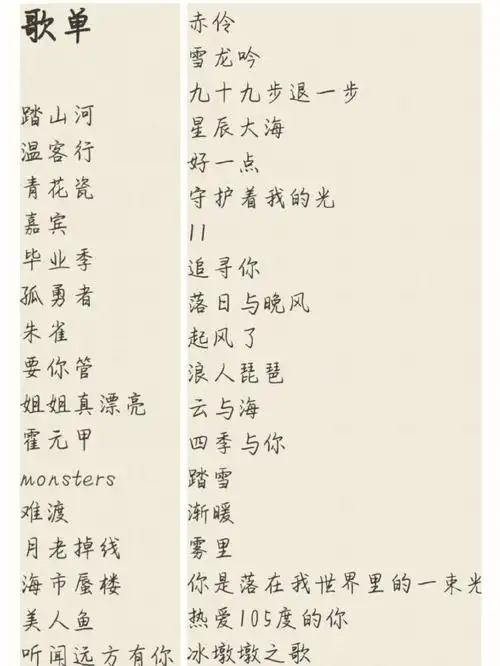 歌单
踏山河
温客行
青花瓷
嘉宾
毕业季
孤勇者
朱雀
要你管
姐姐真漂亮
霍元甲
monsters
难渡
月老掉线
海市蜃楼
美人鱼
听闻远方有你
赤伶
雪龙吟
九十九步退一步
星辰大海
好一点
守护着我的光
11
追寻你
落日与晚风
起风了
浪人琵琶
云与海
四季与你
踏雪
渐暖
雾里
你是落在我世界里的一束光
热爱105度的你
冰墩墩之歌